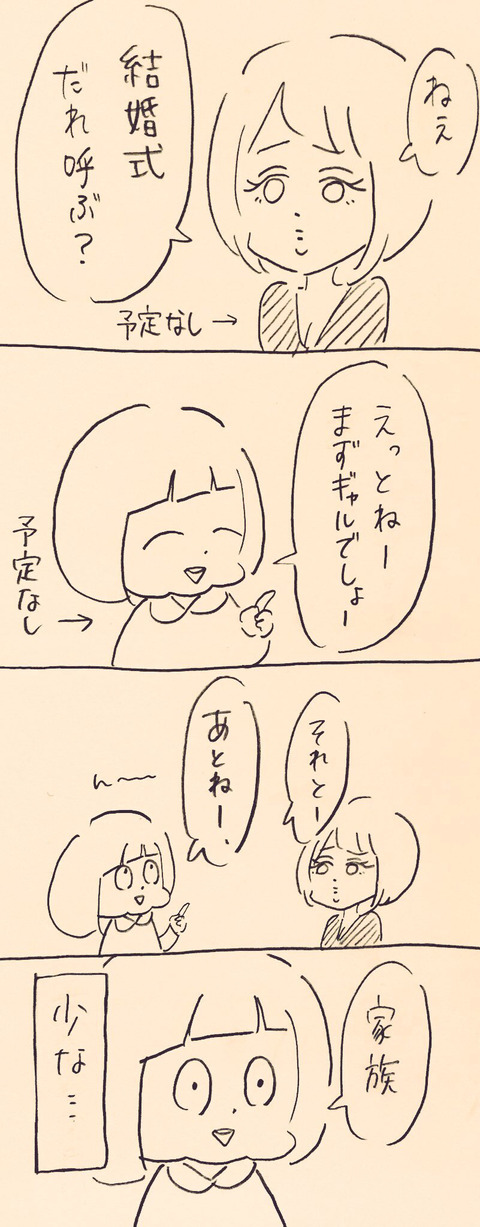 ねえ
結婚式
だれ呼ぶ?
予定なし→
えっとねー
まずギャルでしょー
予定なし→
それとー
あとねー、
ん〜〜
家族
少な…